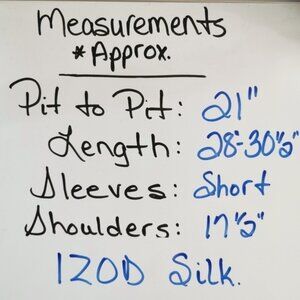 Measurements
* Approx.
Pit to Pit: 21"
Length: 28"-30½"
Sleeves: Short
Shoulders: 17½"
IZOD Silk.